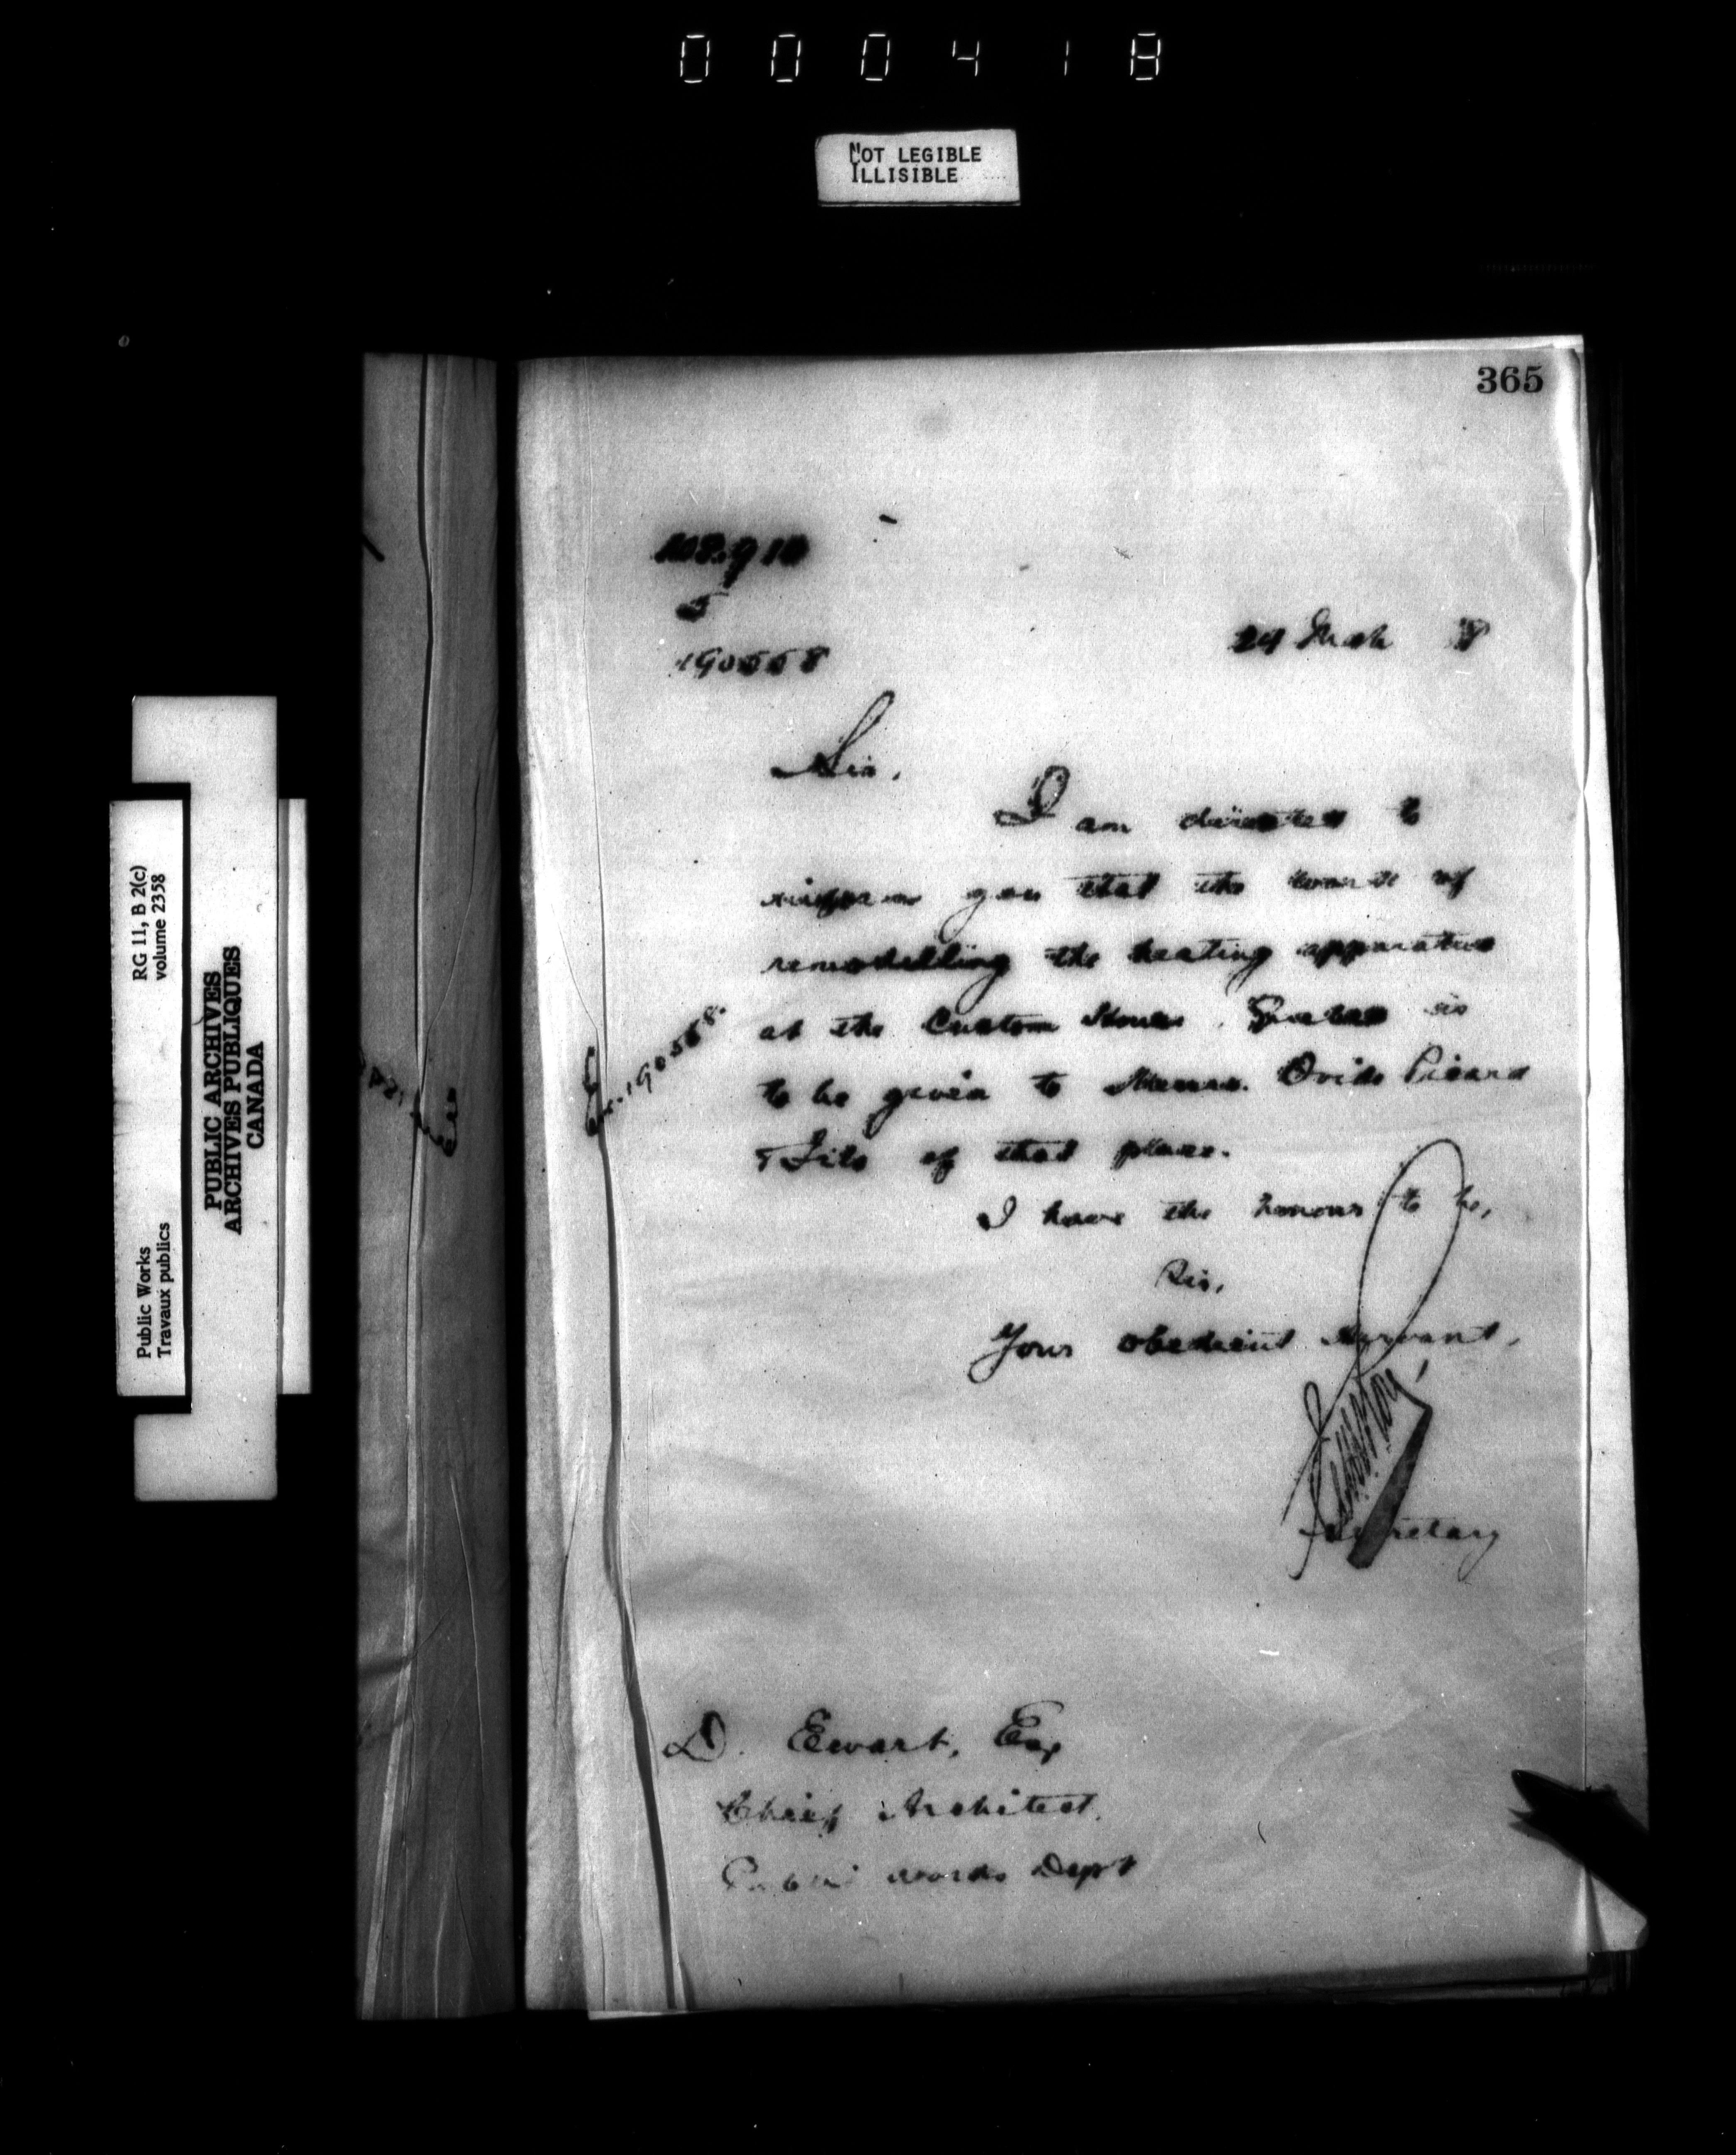 000418
NOT LEGIBLE
ILLISIBLE
365
190558
24 Mch 8
Sir,
I am directed to
inform you that the work of
remodelling the heating apparatus
at the Custom House, Quebec is
to be given to Messrs. Ovide Picard
& Fils of that place.
I have the honour to be,
Sir,
Your obedient servant,
Secretary
D. Ewart, Esq
Chief Architect,
Public Works Dept
190558.
RG 11, B 2(c)
volume 2358
Public Works
Travaux publics
PUBLIC ARCHIVES
ARCHIVES PUBLIQUES
CANADA